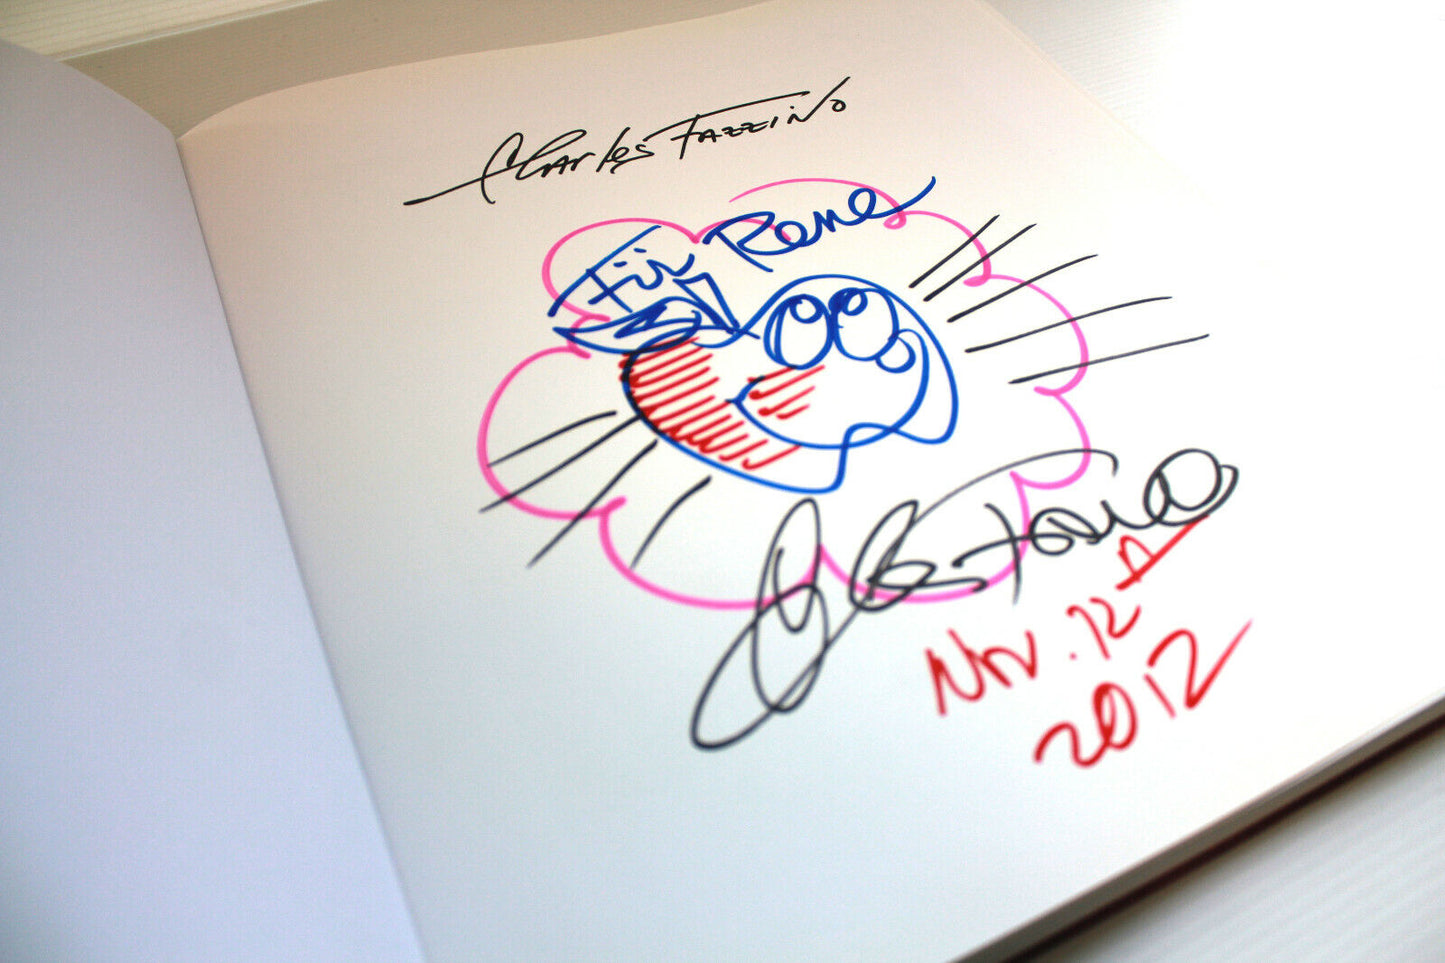 Charles Fazzino
Für Rene
Nov. 12
2012